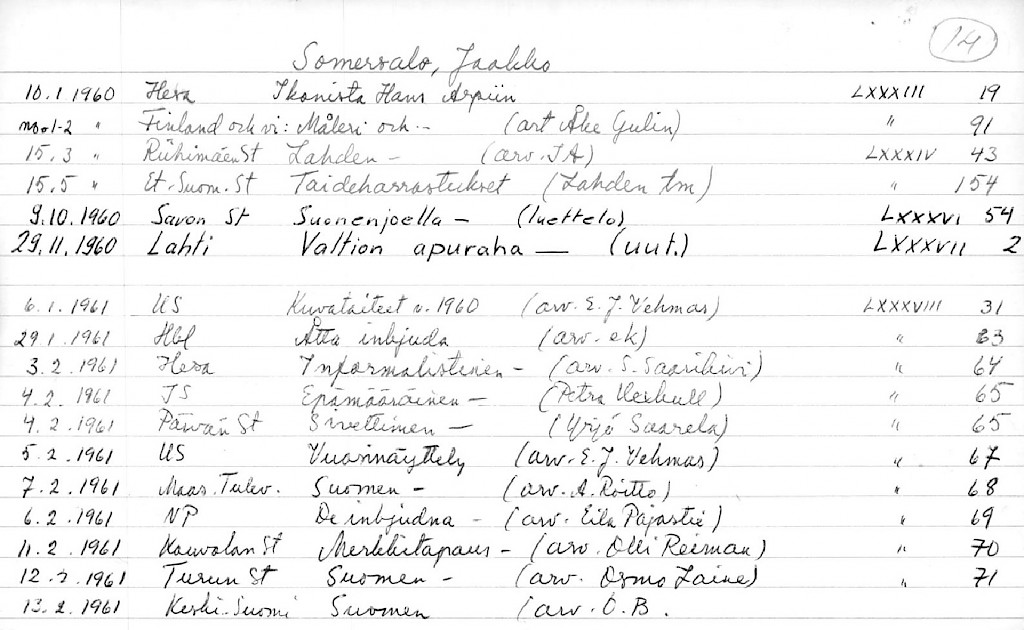 14
Somersalo, Jaakko
10.1 1960 Hesa Ikonista Hans Arpiin LXXXIII 19
no 1-2 " Finland och vi: Måleri och -- (art Åke Gulin) " 91
15.3 " Riihimäen St Lahden - (arv. IA) LXXXIV 43
15.5 " Et.-Suom. St Taideharrastukset (Lahden tm) " 154
9.10.1960 Savon St Suonenjoella - (luettelo) LXXXVI 54
29.11.1960 Lahti Valtion apuraha — (uut.) LXXXVII 2
6.1.1961 US Kuvataiteet v. 1960 (arv. E.J. Vehmas) LXXXVIII 31
29.1.1961 Hbl Åtta inbjuda (arv. ek) " 63
3.2.1961 Hesa Informalistinen - (arv. S. Saarikivi) " 64
4.2.1961 IS Epämääräinen - (Petra Uexkull) " 65
4.2.1961 Päivän St Siveltimen — (Yrjö Saarela) " 65
5.2.1961 US Vuosinäyttely (arv. E.J. Vehmas) " 67
7.2.1961 Maas. Tulev. Suomen - (arv. A. Röitto) " 68
6.2.1961 NP De inbjudna - (arv. Eila Pajastie) " 69
11.2.1961 Kouvolan St Merkkitapaus - (arv. Olli Reiman) " 70
12.2.1961 Turun St Suomen - (arv. Osmo Laine) " 71
13.2.1961 Keski-Suomi Suomen (arv. O.B.